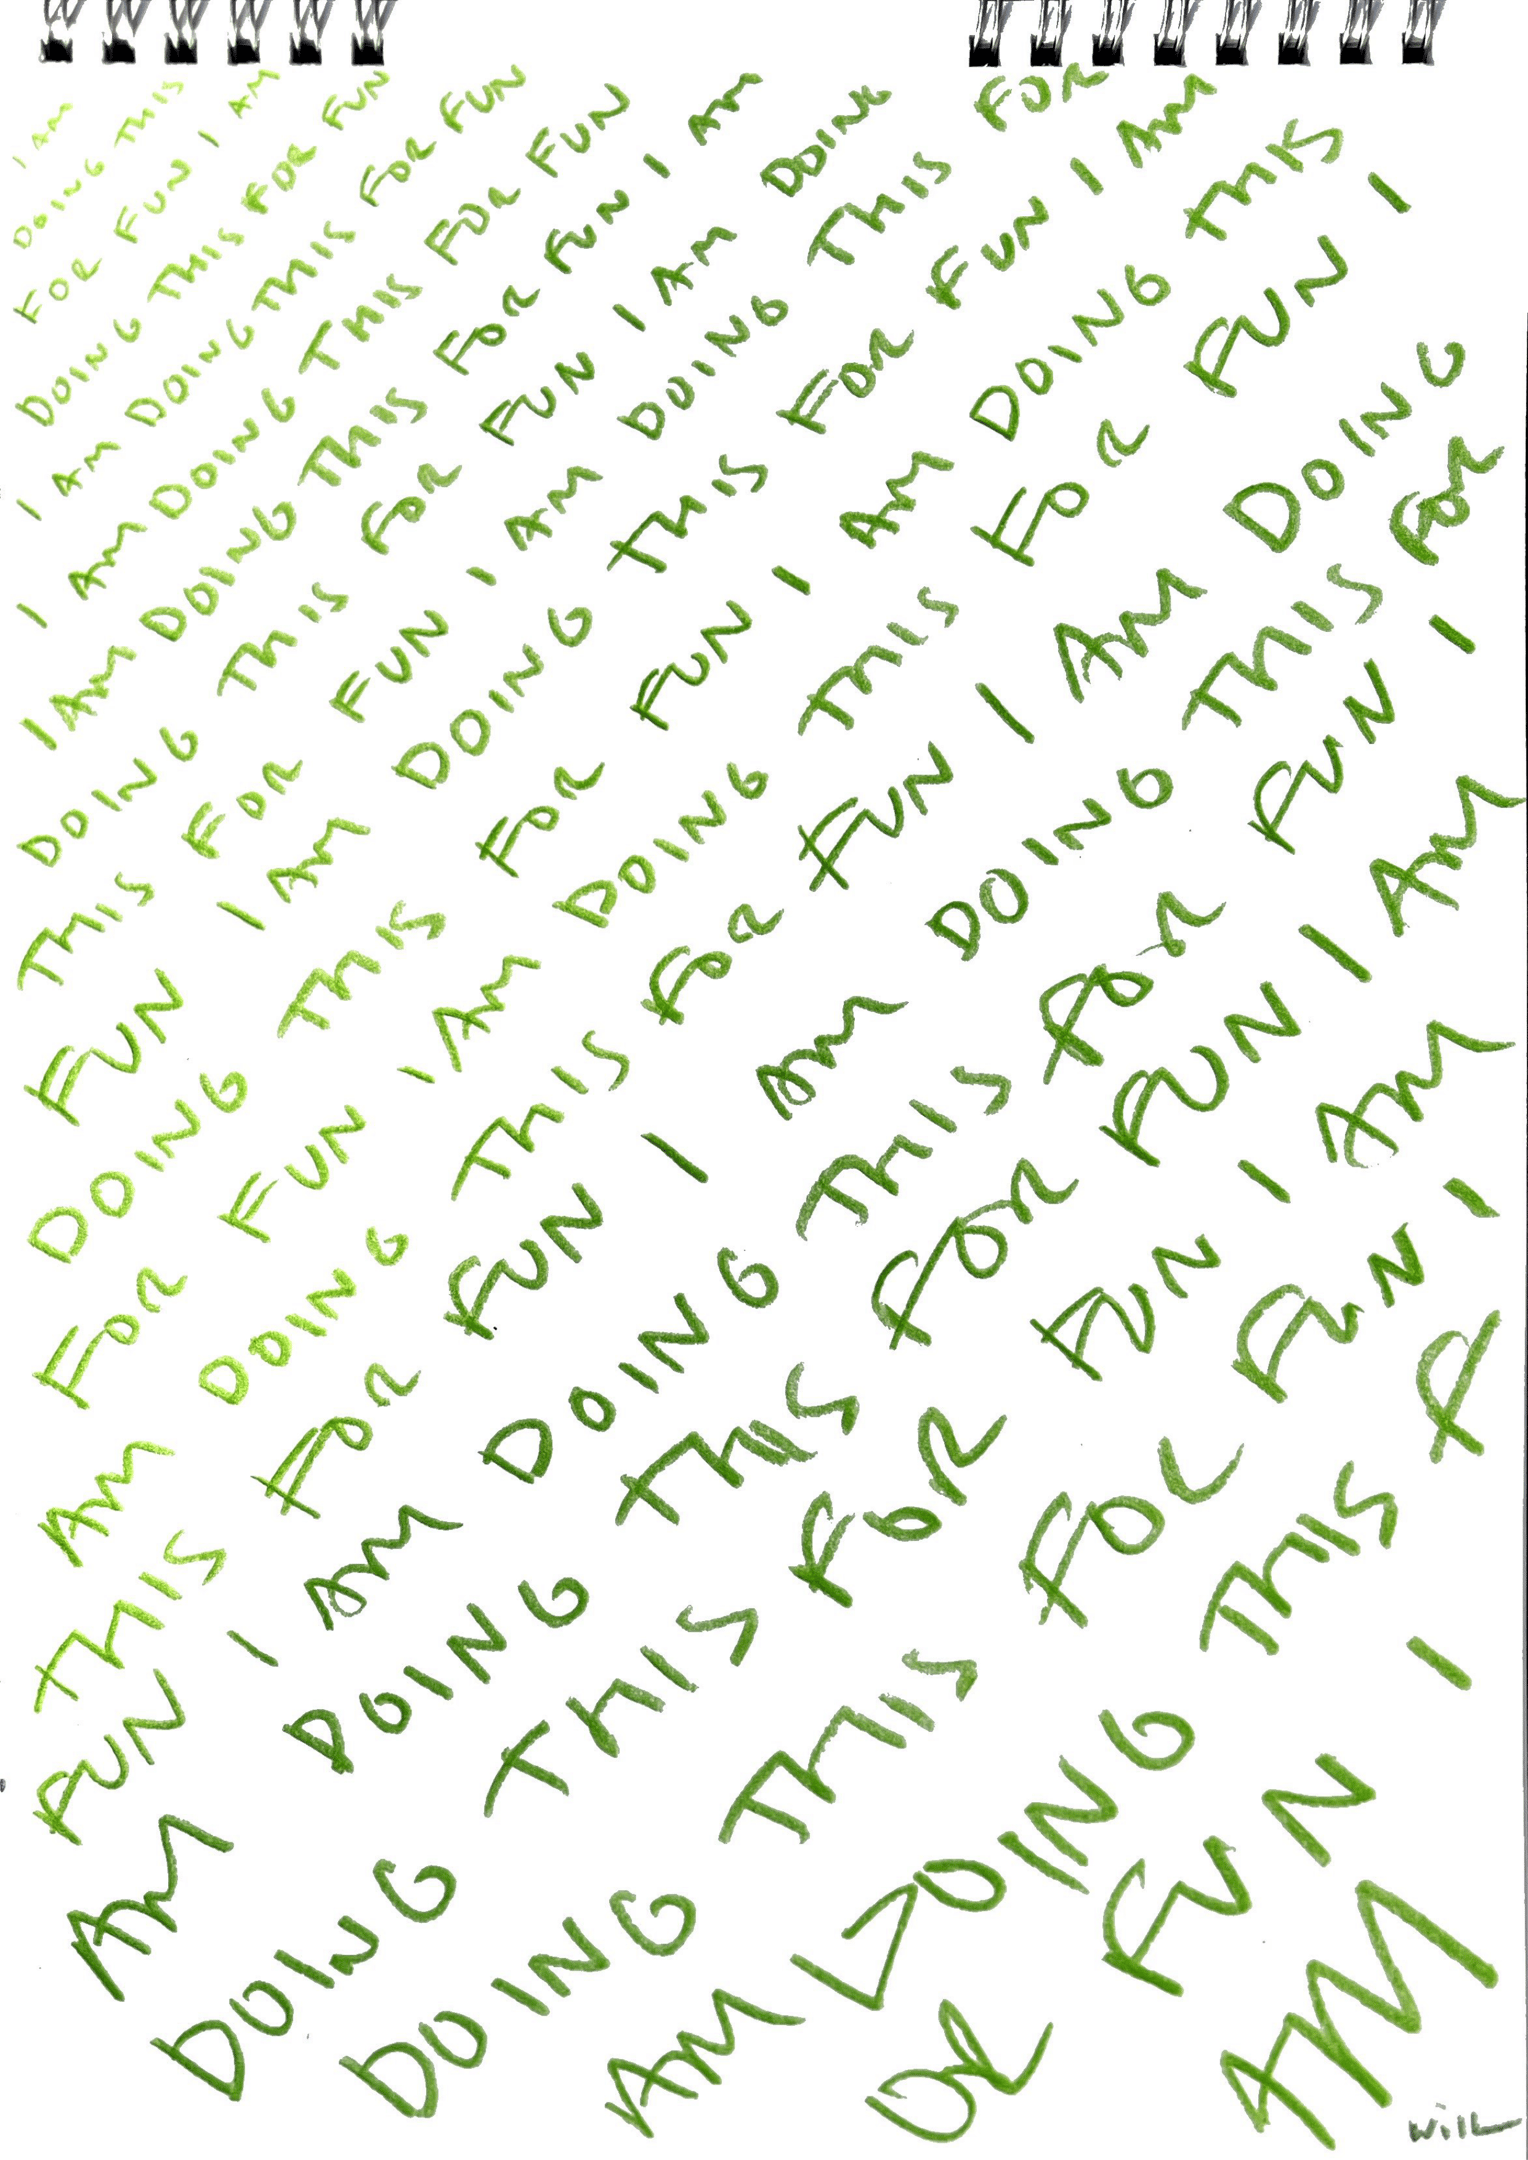 I AM
DOING THIS
FOR FUN I AM
DOING THIS FOR FUN
I AM DOING THIS FOR FUN
I AM DOING THIS FOR FUN
I AM DOING THIS FOR FUN I AM
DOING THIS FOR FUN I AM DOING
THIS FOR FUN I AM DOING THIS FOR
FUN I AM DOING THIS FOR FUN I AM
DOING THIS FOR FUN I AM DOING THIS
FOR FUN I AM DOING THIS FOR FUN I
AM DOING THIS FOR FUN I AM DOING
THIS FOR FUN I AM DOING THIS FOR
FUN I AM DOING THIS FOR FUN I
AM DOING THIS FOR FUN I AM
DOING THIS FOR FUN I AM
DOING THIS FOR FUN I
AM DOING THIS F
OR FUN I
AM
Will